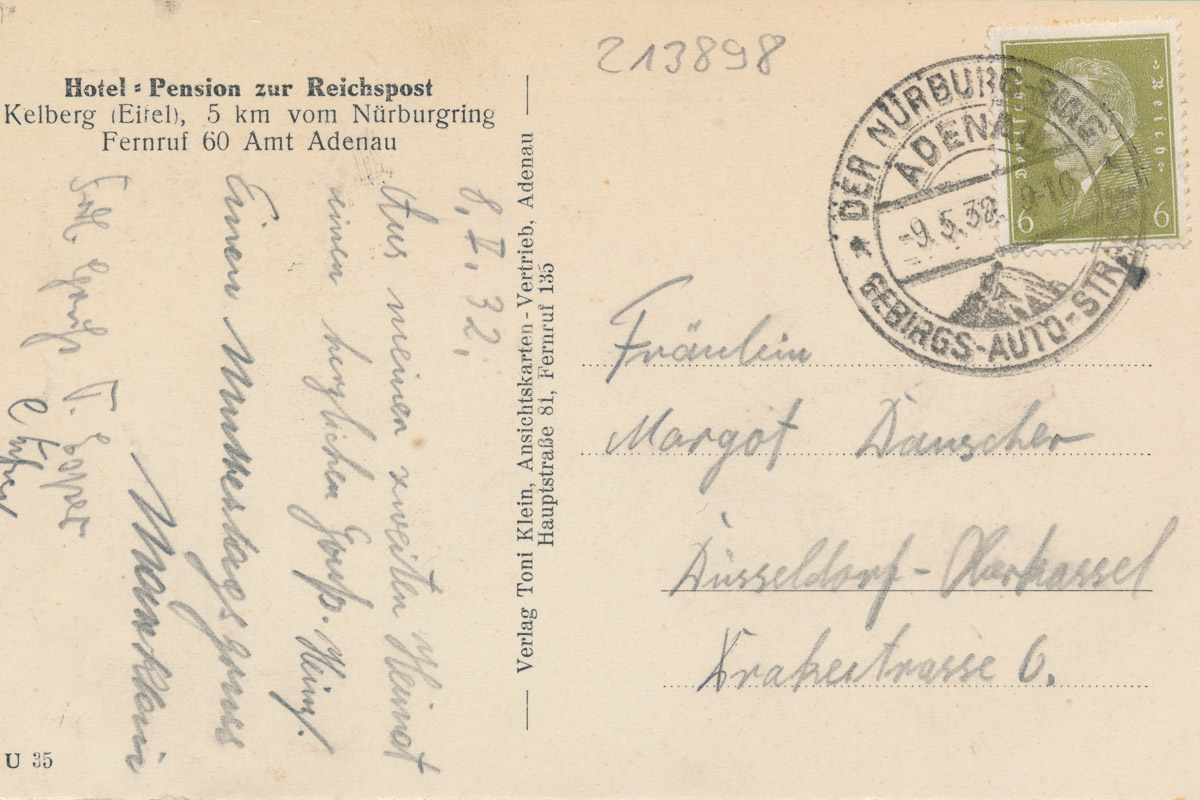 Hotel-Pension zur Reichspost
Kelberg (Eifel), 5 km vom Nürburgring
Fernruf 60 Amt Adenau
8. V. 32.
Aus meinen zweiten Heimat
einen herzlichen Gruß.
Einen Muttertagsgruss
U 35
Verlag Toni Klein, Ansichtskarten-Vertrieb, Adenau
Hauptstraße 81, Fernruf 135
213898
DER NÜRBURG-RING
ADENAU
-9.5.32. 9-10
GEBIRGS-AUTO-STR
Deutsches Reich
6 6
Fräulein
Margot Dauscher
Düsseldorf-Oberkassel
Drakestrasse 6.